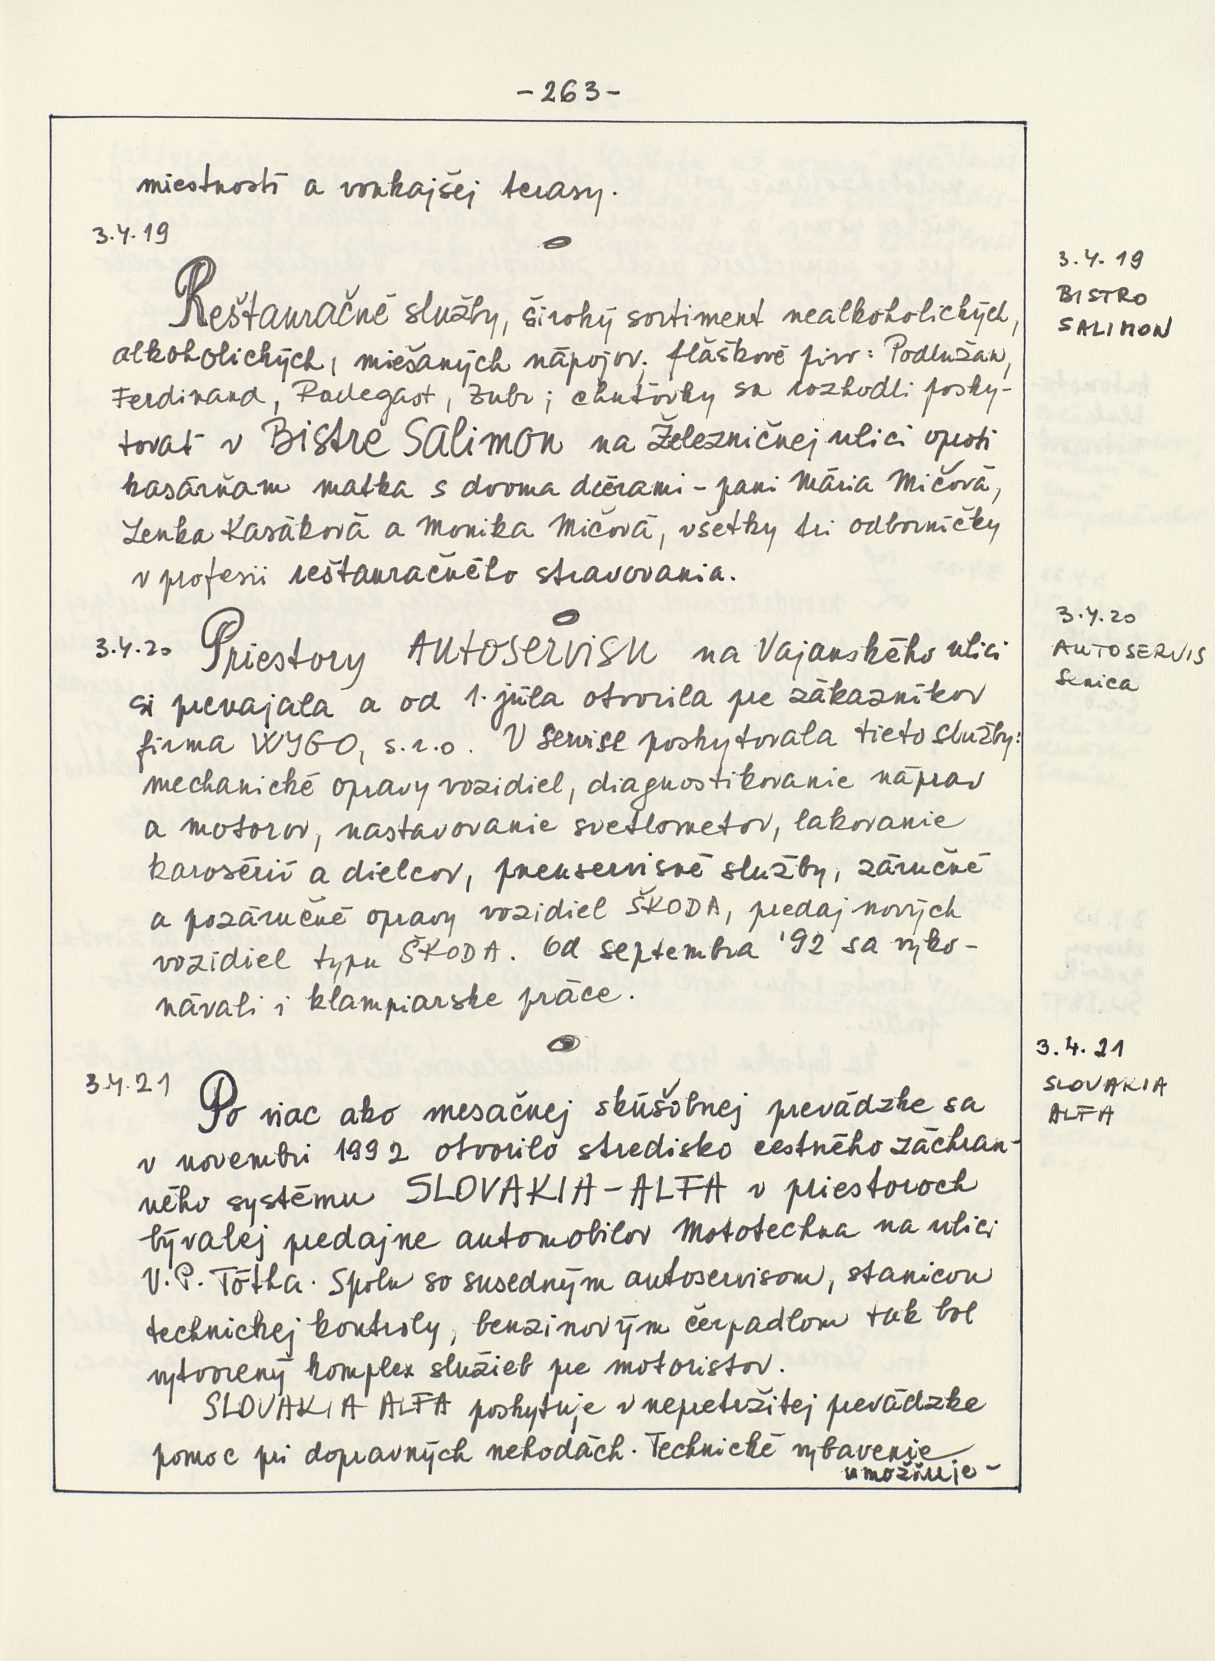 -263-
miestností a vonkajšej terasy.
3.4.19
3.4.19
BISTRO
SALIMON
Reštauračné služby, široký sortiment nealkoholických,
alkoholických, miešaných nápojov; fľaškové pivo: Podlužan,
Ferdinand, Radegast, Zubr; chuťovky sa rozhodli posky-
tovať v Bistre SALIMON na Železničnej ulici oproti
kasárňam matka s dvoma dcérami - pani Mária Mičová,
Lenka Kasáková a Monika Mičová, všetky tri odborníčky
v profesii reštauračného stravovania.
3.4.20
3.4.20
AUTOSERVIS
Senica
Priestory AUTOSERVISU na Vajanského ulici
si prevajala a od 1. júla otvorila pre zákazníkov
firma WYGO, s.r.o. V servise poskytovala tieto služby:
mechanické opravy vozidiel, diagnostikovanie náprav
a motorov, nastavovanie svetlometov, lakovanie
karosérií a dielcov, pneuservisné služby, záručné
a pozáručné opravy vozidiel ŠKODA, predaj nových
vozidiel typu ŠKODA. Od septembra '92 sa vyko-
návali i klampiarske práce.
3.4.21
3.4.21
SLOVAKIA
ALFA
Po viac ako mesačnej skúšobnej prevádzke sa
v novembri 1992 otvorilo stredisko cestného záchran-
ného systému SLOVAKIA-ALFA v priestoroch
bývalej predajne automobilov Mototechna na ulici
V. P. Tótha. Spolu so susedným autoservisom, stanicou
technickej kontroly, benzínovým čerpadlom tak bol
vytvorený komplex služieb pre motoristov.
SLOVAKIA ALFA poskytuje v nepretržitej prevádzke
pomoc pri dopravných nehodách. Technické vybavenie
umožňuje-